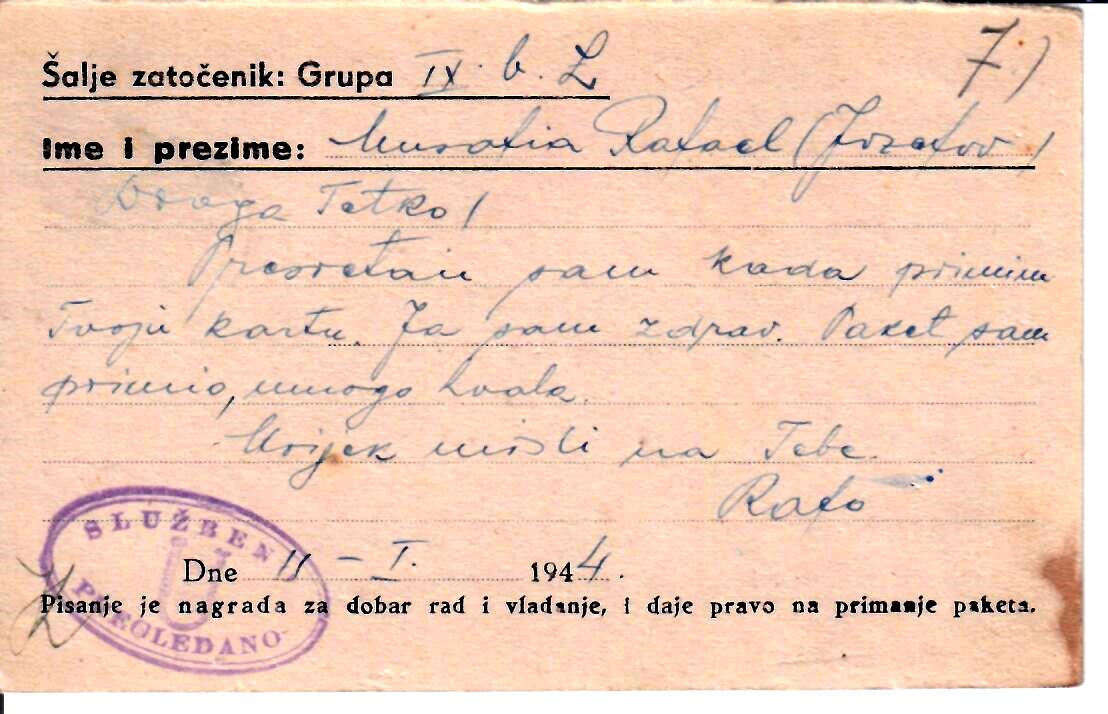 7.)
Šalje zatočenik: Grupa IX. b. Z
Ime i prezime: Musafia Rafael (Jozefov)
Draga Tetko!
Presretan sam kada primim
Tvoju kartu. Ja sam zdrav. Paket sam
primio, mnogo hvala.
Uvijek misli na Tebe
Rafo
SLUŽBENO
U
PREGLEDANO
Dne 11 – I. 1944.
Pisanje je nagrada za dobar rad i vladanje, i daje pravo na primanje paketa.
Z